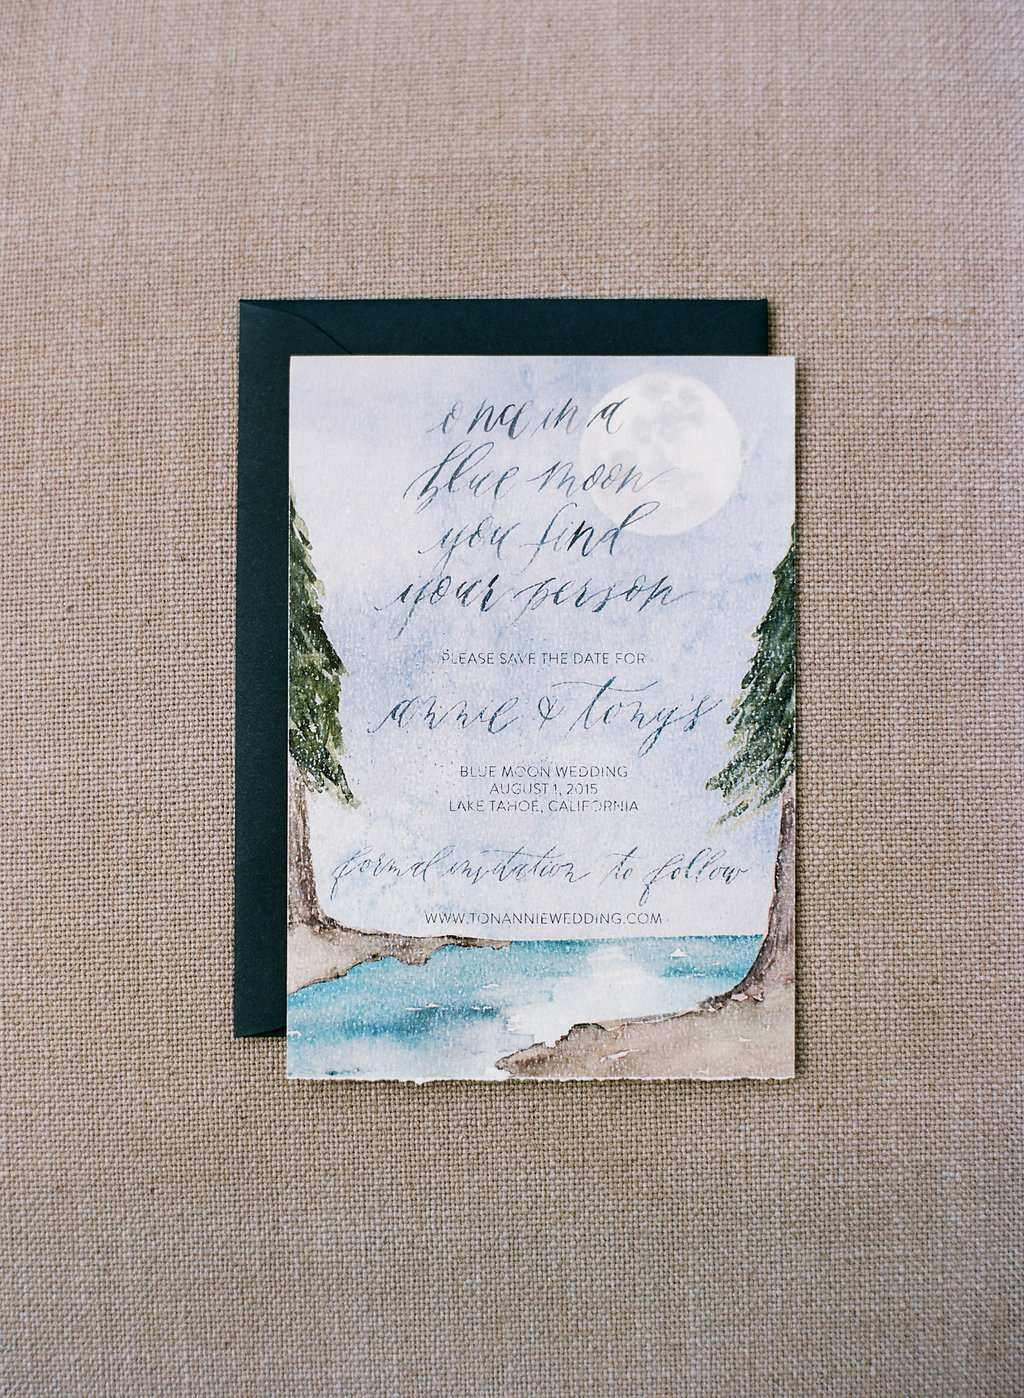 once in a
blue moon
you find
your person
PLEASE SAVE THE DATE FOR
annie & tony's
BLUE MOON WEDDING
AUGUST 1, 2015
LAKE TAHOE, CALIFORNIA
formal invitation to follow
WWW.TONANNIEWEDDING.COM